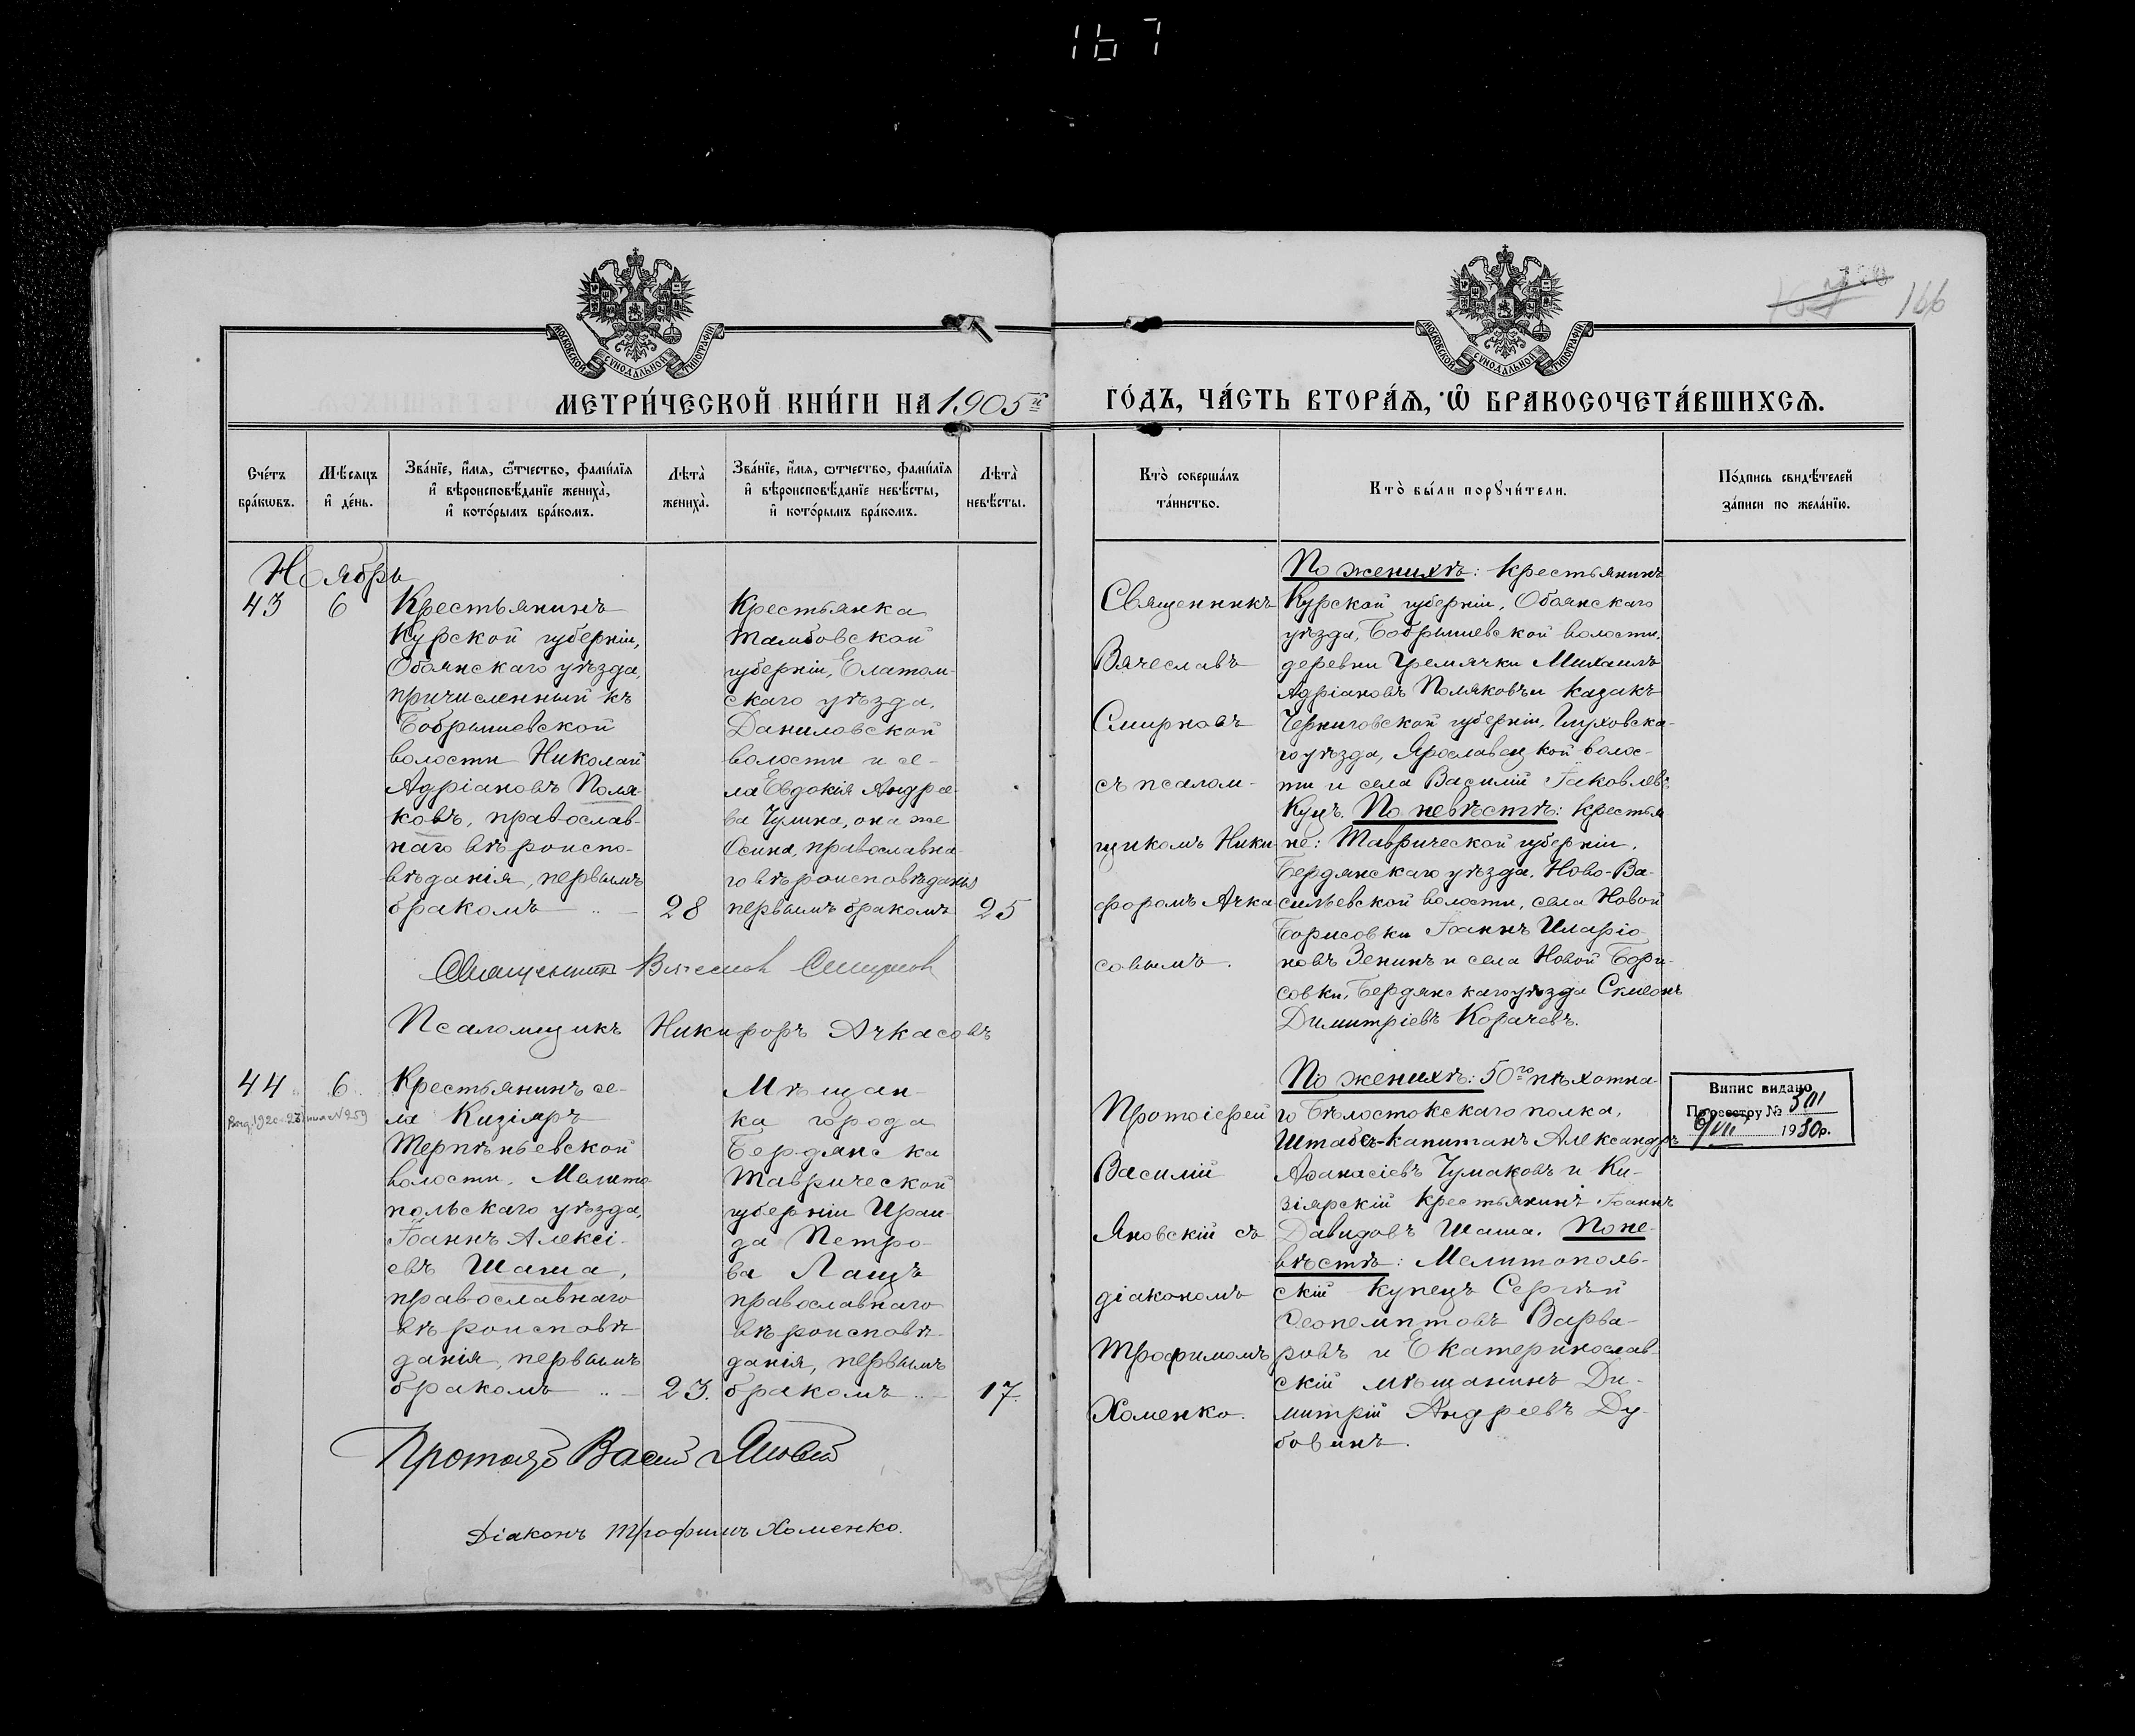 167
166
МОСКОВСКОЙ СѴНОДАЛЬНОЙ ТИПОГРАФІИ
МОСКОВСКОЙ СѴНОДАЛЬНОЙ ТИПОГРАФІИ
МЕТРИ́ЧЕСКОЙ КНИ́ГИ НА 1905й
ГО́ДЪ, ЧА́СТЬ ВТОРА́Ѧ, Ѿ БРАКОСОЧЕТА́ВШИХСѦ.
Сче́тъ
бра́кѡвъ.
Мѣ́сяцъ
и҆ де́нь.
Зва́нїе, и҆́мя, ѻ҆́тчество, фами́лїя
и҆ вѣроисповѣ́данїе жениха̀,
и҆ кото́рымъ бра́комъ.
Лѣта̀
жениха̀.
Зва́нїе, и҆́мя, ѻ҆тчество, фами́лїя
и҆ вѣроисповѣ́данїе невѣ́сты,
и҆ кото́рымъ бра́комъ.
Лѣта̀
невѣ́сты.
Кто̀ соверша́лъ
та́инство.
Кто̀ бы́ли порꙋчи́тели.
По́дпись свидѣ́телей
за́писи по жела́нїю.
Ноябрь
43
6
Крестьянинъ
Курской губерніи,
Обоянскаго уѣзда,
причисленный къ
Бобрышевской
волости Николай
Адріановъ Поля
ковъ, православ-
наго вѣроиспо-
вѣданія, первымъ
бракомъ
28
Крестьянка
Тамбовской
губерніи, Елатом-
скаго уѣзда,
Даниловской
волости и се-
ла Евдокія Андрее-
ва Чулина, она же
Осина, православна-
го вѣроисповѣданія
первымъ бракомъ
25
Священникъ
Вячеславъ
Смирновъ
съ псалом-
щикомъ Ники-
форомъ Ачка
совымъ.
По женихѣ: крестьянинъ
Курской губерніи, Обоянскаго
уѣзда, Бобрышевской волости,
деревни Гремячки Михаилъ
Адріановъ Поляковъ и казакъ
Черниговской губерніи, Глуховска-
го уѣзда, Ярославецкой волос-
ти и села Василій Іаковлевъ
Куцъ. По невѣстѣ: крестья
не: Таврической губерніи,
Бердянскаго уѣзда, Ново-Ва-
сильевской волости, села Новой
Борисовки Іоаннъ Иларіо-
новъ Зенинъ и села Новой Бори-
совки, Бердянскаго уѣзда Симеонъ
Димитріевъ Корачевъ.
Священникъ Вячеслав Смирнов
Псаломщикъ Никифоръ Ачкасовъ
44
6
Крестьянинъ се-
ла Кизіяръ
Терпѣньевской
волости, Мелито-
польскаго уѣзда,
Іоаннъ Алексі-
евъ Шаша,
православнаго
вѣроисповѣ-
данія, первымъ
бракомъ
23.
Мѣщан-
ка города
Бердянска
Таврической
губерніи Ираи-
да Петро-
ва Лащъ
православнаго
вѣроисповѣ-
данія, первымъ
бракомъ
17.
Протоіерей
Василій
Яновскій съ
діакономъ
Трофимомъ
Хоменко.
По женихѣ: 50го пѣхотна-
го Бѣлостокскаго полка,
Штабсъ-капитанъ Александръ
Аѳанасіевъ Чумаковъ и Ки-
зіярскій крестьянинъ Іоаннъ
Давидовъ Шаша. По не-
вѣстѣ: Мелитополь-
скій купецъ Сергѣй
Ѳеопемптовъ Варва-
ровъ и Екатеринослав-
скій мѣщанинъ Ди-
митрій Андреевъ Ду-
бовинъ.
Випис видано
По реестру № 501
6/VII 1930р.
Діаконъ Трофимъ Хоменко.